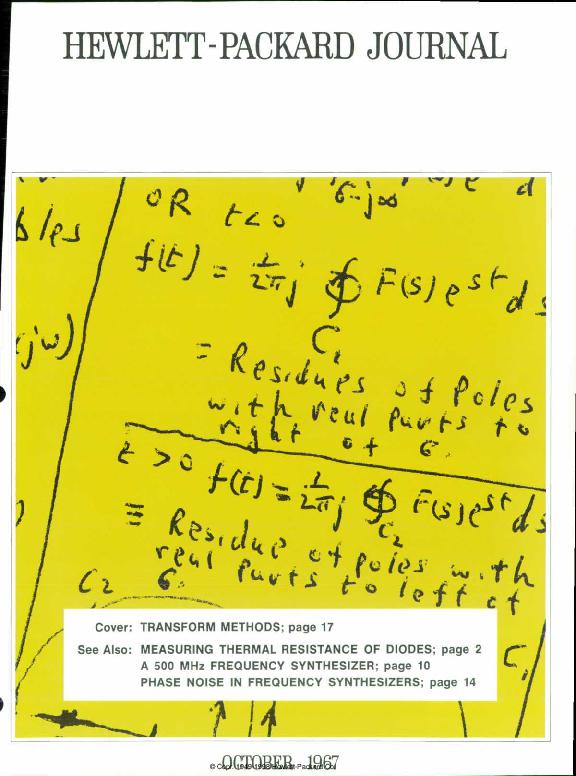 HEWLETT-PACKARD JOURNAL
σ-j∞
OR t<0
bles
f(t) = 1/2πj ∮ F(s) e^st ds
C₁
(jω)
= Residues of Poles
with real parts to
right of σ.
t > 0 f(t) = 1/2πj ∮ F(s)e^st ds
C₂
≡ Residue of poles with
real parts to left of
C₂ σ.
C₁
Cover: TRANSFORM METHODS; page 17
See Also: MEASURING THERMAL RESISTANCE OF DIODES; page 2
A 500 MHz FREQUENCY SYNTHESIZER; page 10
PHASE NOISE IN FREQUENCY SYNTHESIZERS; page 14
OCTOBER 1967
© Copr. 1949-1998 Hewlett-Packard Co.